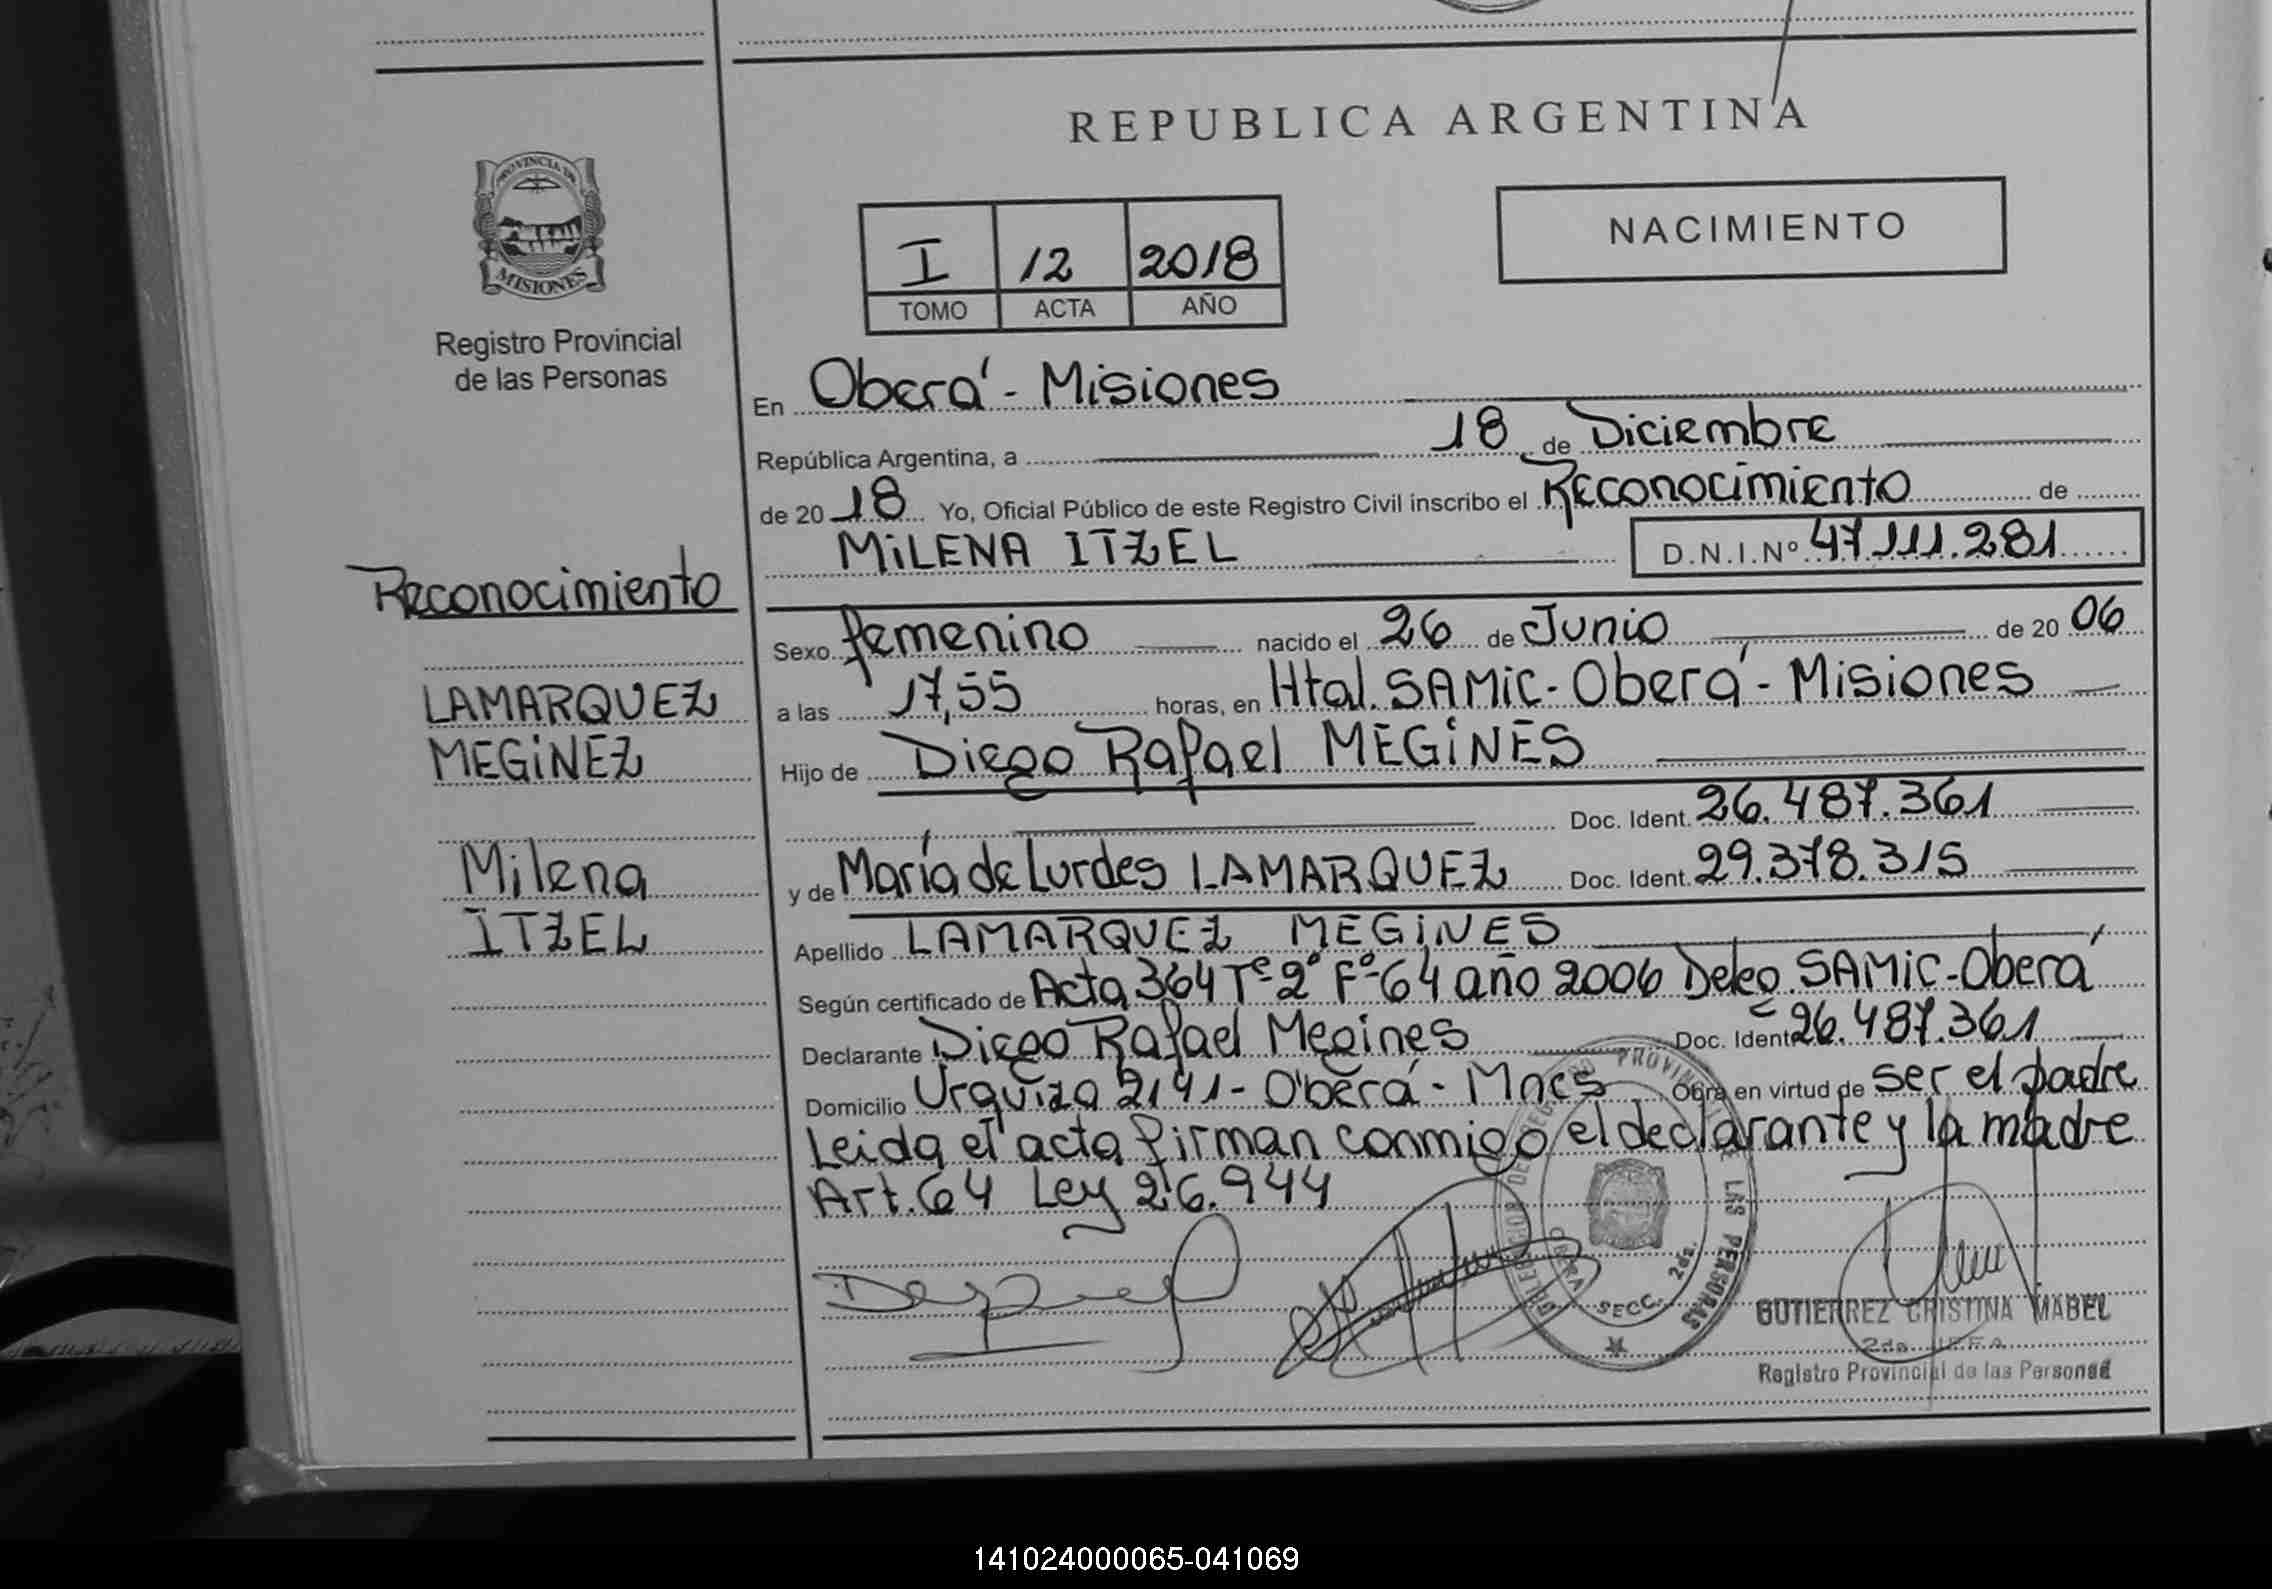 REPUBLICA ARGENTINA
PROVINCIA DE
MISIONES
Registro Provincial
de las Personas
NACIMIENTO
I 12 2018
TOMO ACTA AÑO
En Oberá - Misiones
República Argentina, a 18 de Diciembre
de 2018 Yo, Oficial Público de este Registro Civil inscribo el Reconocimiento de
MiLENA ITZEL D.N.I.Nº 47.111.281
Reconocimiento
LAMARQUEZ
MEGiNEZ
Milena
ITZEL
Sexo femenino nacido el 26 de Junio de 2006
a las 17,55 horas, en Htal. SAMiC - Oberá - Misiones
Hijo de Diego Rafael MEGiNES
Doc. Ident. 26.487.361
y de María de Lurdes LAMARQUEZ Doc. Ident. 29.378.315
Apellido LAMARQUEZ MEGiNES
Según certificado de Acta 364 Tº 2º Fº 64 año 2006 Deleg. SAMiC - Oberá
Declarante Diego Rafael Megines Doc. Ident. 26.487.361
Domicilio Urquiza 2141 - Oberá - Mnes Obra en virtud de ser el padre
Leida el acta firman conmigo el declarante y la madre
Art. 64 Ley 26.944
DELEGACION DE REGISTRO PROVINCIAL DE LAS PERSONAS
OBERA SECC. 2da.
GUTIERREZ CRISTINA MABEL
2da. JEFA
Registro Provincial de las Personas
141024000065-041069